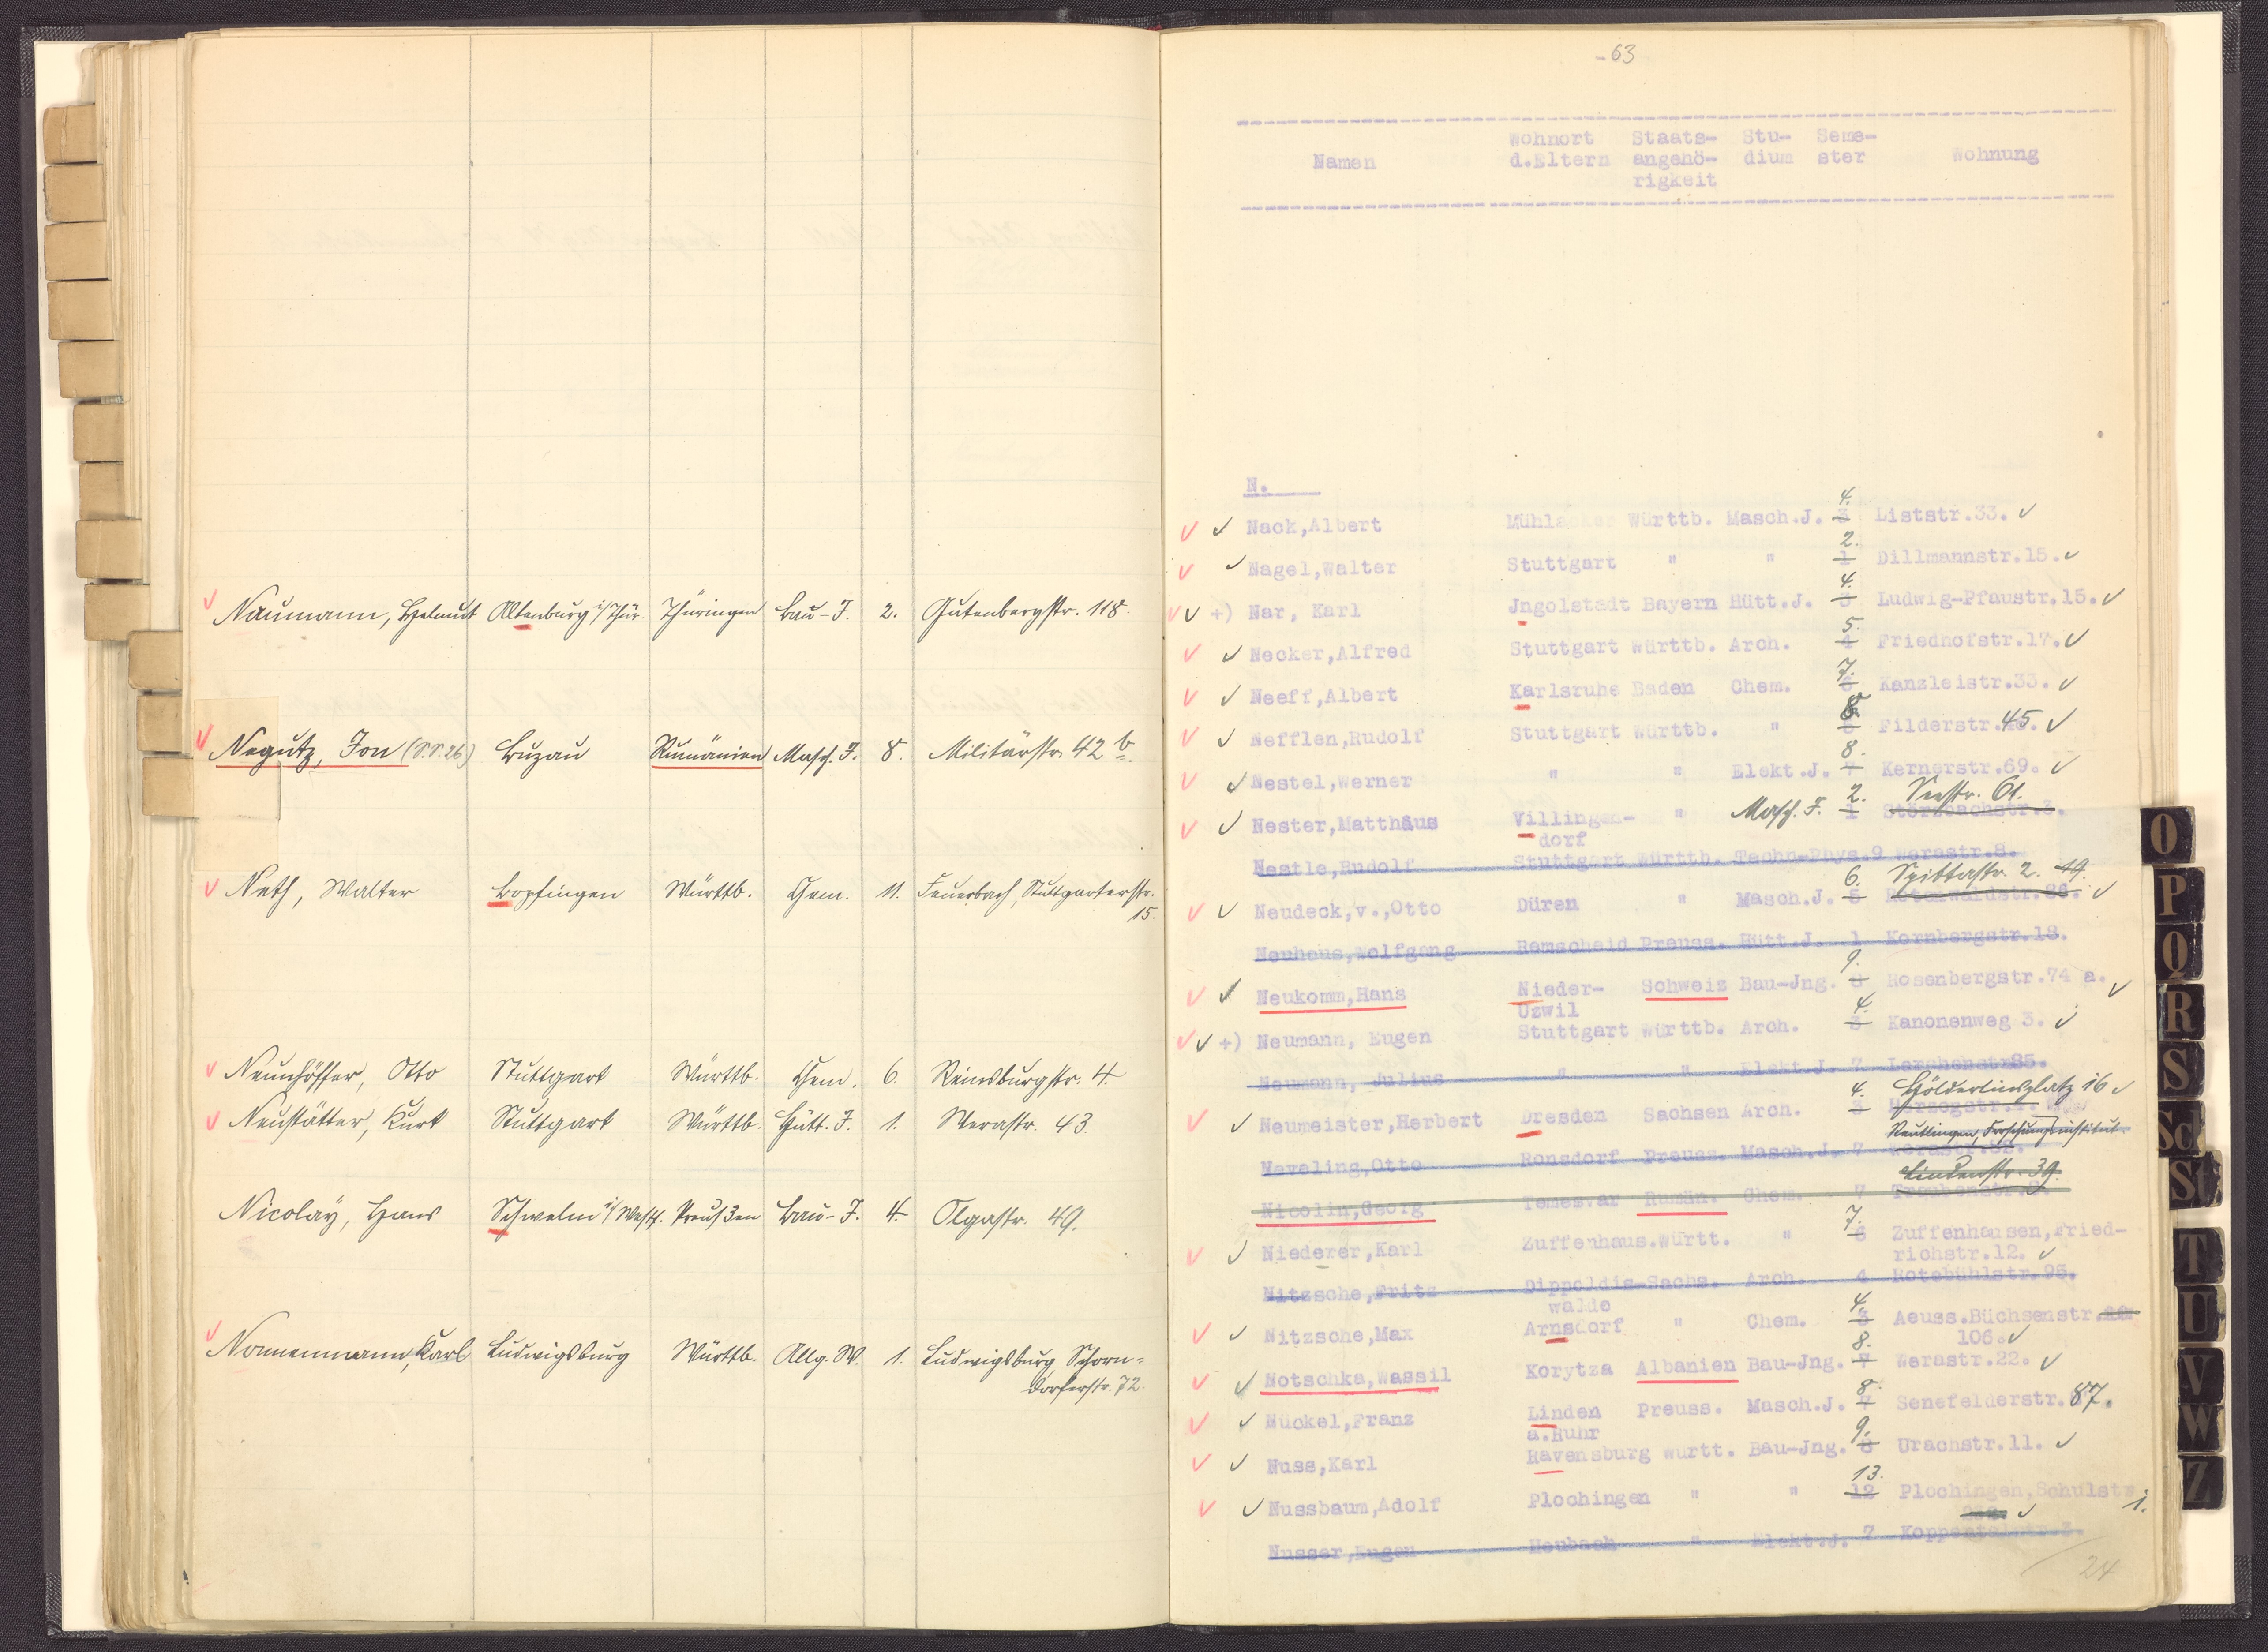 Naumann, Helmut Altenburg i/Thür. Thüringen Bau-I. 2. Gutenbergstr. 118.
Negutz, Jon (S.S.26) Buzau Rumänien Masch.I. 8. Militärstr. 42 b.
Neth, Walter Bopfingen Württb. Chem. 11. Feuerbach, Stuttgarterstr.
15.
Neunhöffer, Otto Stuttgart Württb. Chem. 6. Reinsburgstr. 4.
Neustätter, Kurt Stuttgart Württb. Hütt.I. 1. Werastr. 43.
Nicolaÿ, Hans Schwelm i/Westf. Preußen Bau-I. 4. Olgastr. 49.
Nonnenmann, Karl Ludwigsburg Württb. Allg.W. 1. Ludwigsburg Schorn-
dorferstr. 72.
- 63
Wohnort Staats- Stu- Seme-
Namen d.Eltern angehö- dium ster Wohnung
rigkeit
N.
4.
Nack,Albert Mühlacker Württb. Masch.J. 3 Liststr.33.
2.
Nagel,Walter Stuttgart " " 1 Dillmannstr.15.
4.
+) Nar, Karl Jngolstadt Bayern Hütt.J. 3 Ludwig-Pfaustr.15.
5.
Necker,Alfred Stuttgart Württb. Arch. 4 Friedhofstr.17.
7.
Neeff,Albert Karlsruhe Baden Chem. 6 Kanzleistr.33.
8.
Nefflen,Rudolf Stuttgart Württb. " Filderstr.45.
8.
Nestel,Werner " " Elekt.J. 7 Kernerstr.69.
2. Seestr. 61.
Nester,Matthäus Villingen- " Masch. I. 1 Störzbachstr.3.
dorf
Nestle,Rudolf Stuttgart Württb. Techn-Phys.9 Werastr.8.
6. Spittastr. 2. 19.
Neudeck,v.,Otto Düren " Masch.J. 5 Rotenwaldstr.
Neuhaus,Wolfgang Remscheid Preuss. Hütt.J. 1 Kornbergstr.18.
9.
Neukomm,Hans Nieder- Schweiz Bau-Jng. 8 Rosenbergstr.74 a.
Uzwil
4.
+) Neumann, Eugen Stuttgart Württb. Arch. 3 Kanonenweg 3.
Neumann, Julius " " Elekt.J. 7 Lerchenstr85.
4. Hölderlinsplatz 16
Neumeister,Herbert Dresden Sachsen Arch. 3 Herzogstr.
Reutlingen, Forschungsinstitut
Neveling,Otto Ronsdorf Preuss. Masch.J. 7
Lindenstr. 39.
Nicolin,Georg Temesvar Rumän. Chem. 7
7.
Niederer,Karl Zuffenhaus.Württ. " 6 Zuffenhausen,Fried-
richstr.12.
Nitzsche,Fritz Dippoldis-Sachs. Arch. 4 Rotebühlstr.95.
walde
4.
Nitzsche,Max Arnsdorf " Chem. 3 Aeuss.Büchsenstr.
106.
8.
Notschka,Wassil Korytza Albanien Bau-Jng. 7 Werastr.22.
8.
Nückel,Franz Linden Preuss. Masch.J. 7 Senefelderstr.87.
a.Ruhr
9.
Nuss,Karl Ravensburg Württ. Bau-Jng. 8 Urachstr.11.
13.
Nussbaum,Adolf Plochingen " " 12 Plochingen,Schulstr
1.
Nusser,Eugen Heubach " Elekt.J. 7
24
O
P
Q
R
S
Sch
St
T
U
V
W
Z